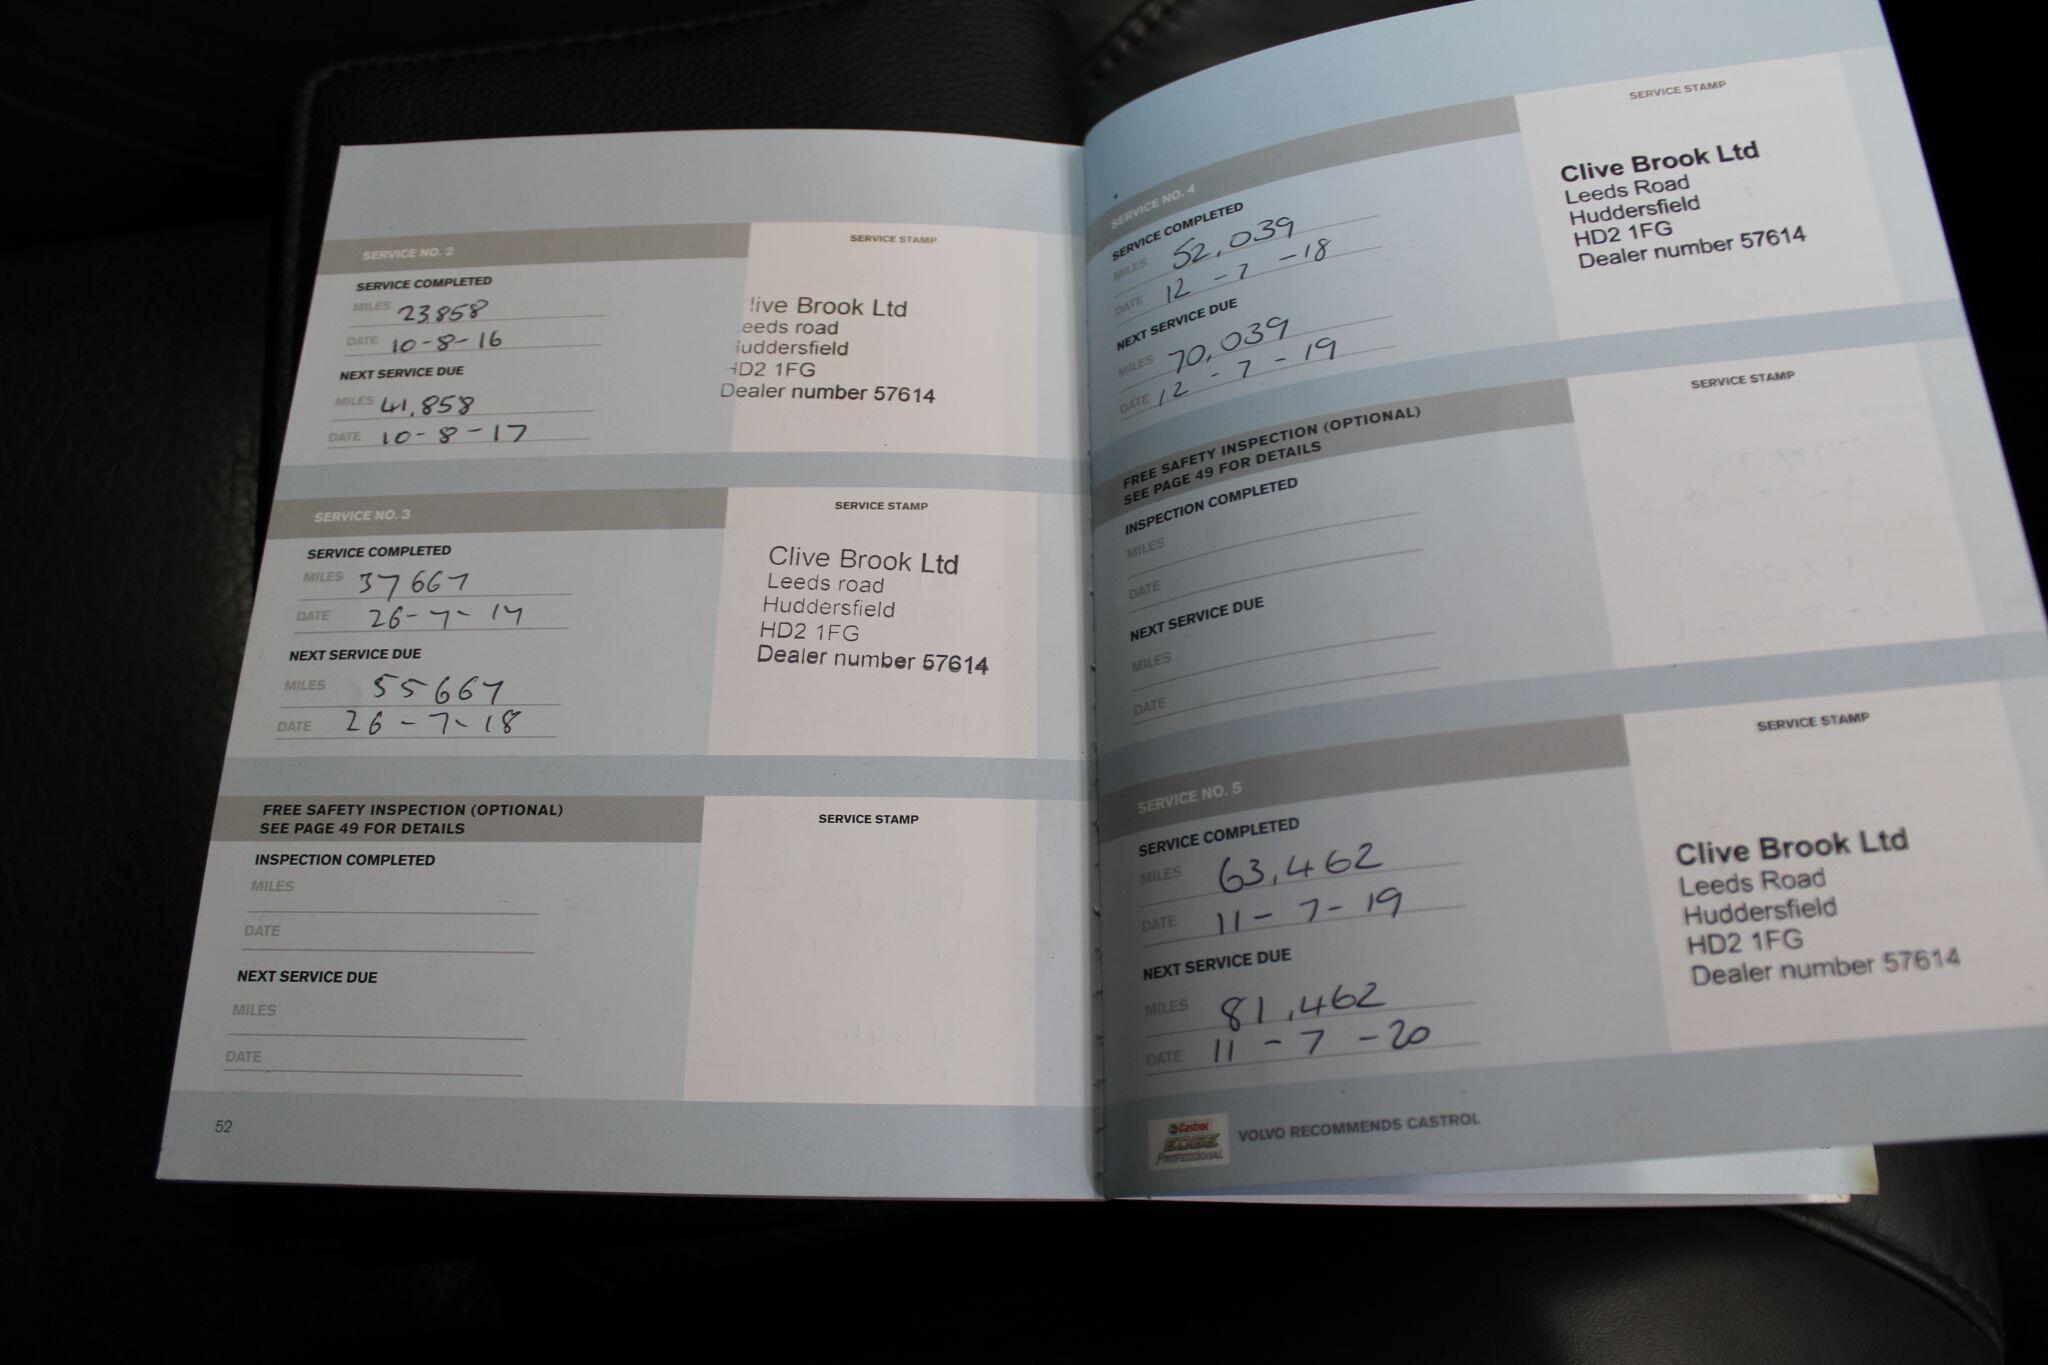 SERVICE NO. 2
SERVICE STAMP
SERVICE COMPLETED
MILES 23,858
DATE 10-8-16
NEXT SERVICE DUE
MILES 41,858
DATE 10-8-17
live Brook Ltd
eeds road
uddersfield
HD2 1FG
Dealer number 57614
SERVICE NO. 3
SERVICE STAMP
SERVICE COMPLETED
MILES 37667
DATE 26-7-17
NEXT SERVICE DUE
MILES 55667
DATE 26-7-18
Clive Brook Ltd
Leeds road
Huddersfield
HD2 1FG
Dealer number 57614
FREE SAFETY INSPECTION (OPTIONAL)
SEE PAGE 49 FOR DETAILS
SERVICE STAMP
INSPECTION COMPLETED
MILES
DATE
NEXT SERVICE DUE
MILES
DATE
52
SERVICE NO. 4
SERVICE STAMP
SERVICE COMPLETED
MILES 52,039
DATE 12-7-18
NEXT SERVICE DUE
MILES 70,039
DATE 12-7-19
Clive Brook Ltd
Leeds Road
Huddersfield
HD2 1FG
Dealer number 57614
FREE SAFETY INSPECTION (OPTIONAL)
SEE PAGE 49 FOR DETAILS
SERVICE STAMP
INSPECTION COMPLETED
MILES
DATE
NEXT SERVICE DUE
MILES
DATE
SERVICE NO. 5
SERVICE STAMP
SERVICE COMPLETED
MILES 63,462
DATE 11-7-19
NEXT SERVICE DUE
MILES 81,462
DATE 11-7-20
Clive Brook Ltd
Leeds Road
Huddersfield
HD2 1FG
Dealer number 57614
Castrol
EDGE
PROFESSIONAL
VOLVO RECOMMENDS CASTROL